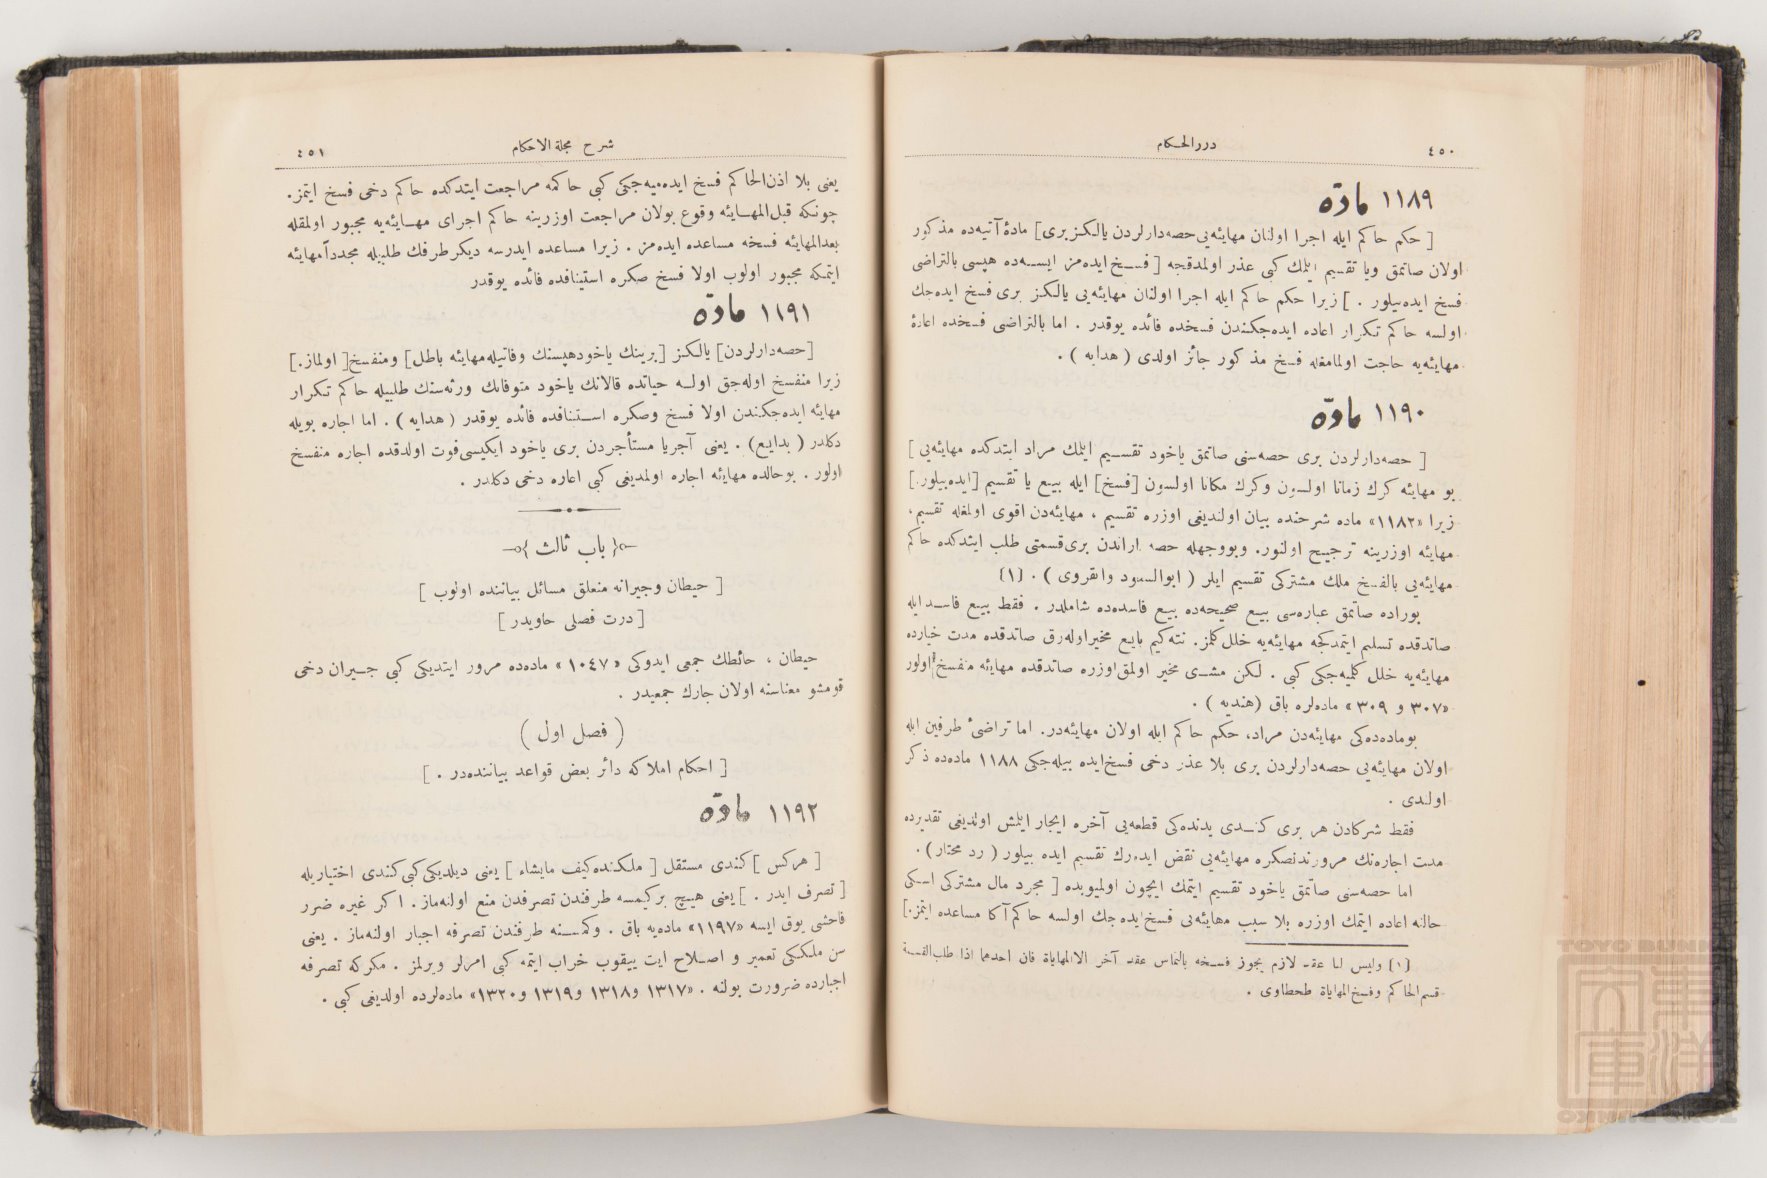 ٤٥٠
دررالحكام
١١٨٩ مادّه
[ حكم حاكم ايله اجرا اولنان مهايئه‌يى حصه‌دارلردن يالكزبرى] مادهٔ آتيه‌ده مذكور
اولان صاتمق ويا تقسيم ايتمك كبى عذر اولمدقجه [ فسخ ايده‌مز ايسه‌ده هپسى بالتراضى
فسخ ايده‌بيلور . ] زيرا حكم حاكم ايله اجرا اولنان مهايئه‌يى يالكز برى فسخ ايده‌جك
اولسه حاكم تكرار اعاده ايده‌جكندن فسخده فائده يوقدر . اما بالتراضى فسخده اعادهٔ
مهايئه‌يه حاجت اولمامغله فسخ مذكور جائز اولدى ( هدايه ) .
١١٩٠ مادّه
[ حصه‌دارلردن برى حصه‌سنى صاتمق ياخود تقسيم ايتمك مراد ايتدكده مهايئه‌يى ]
بو مهايئه كرك زمانا اولسون وكرك مكانا اولسون [فسخ] ايله بيع يا تقسيم [ايده‌بيلور.]
زيرا «١١٨٢» ماده شرحنده بيان اولنديغى اوزره تقسيم ، مهايئه‌دن اقوى اولمغله تقسيم ،
مهايئه اوزرينه ترجيح اولنور. وبووجهله حصه‌دارلردن برى قسمتى طلب ايتدكده حاكم
مهايئه‌يى بالفسخ ملك مشتركى تقسيم ايلر ( ابوالسعود وانقروى ) . (١)
بوراده صاتمق عباره‌سى بيع صحيحه‌ده بيع فاسده‌ده شاملدر . فقط بيع فاسد ايله
صاتدقده تسليم ايتمدكجه مهايئه‌يه خلل كلمز. نته‌كيم بايع مخيراوله‌رق صاتدقده مدت خيارده
مهايئه‌يه خلل كلميه‌جكى كبى . لكن مشترى مخير اولمق اوزره صاتدقده مهايئه منفسخ اولور
«٣٠٧ و ٣٠٩» ماده‌لره باق (هنديه ) .
بوماده‌ده‌كى مهايئه‌دن مراد، حكم حاكم ايله اولان مهايئه‌در. اما تراضىٔ طرفين ايله
اولان مهايئه‌يى حصه‌دارلردن برى بلا عذر دخى فسخ‌ايده بيله‌جكى ١١٨٨ ماده‌ده ذكر
اولندى .
فقط شركادن هر برى كندى يدنده‌كى قطعه‌يى آخره ايجار ايتمش اولديغى تقديرده
مدت اجاره‌نك مرورندنصكره مهايئه‌يى نقض ايده‌رك تقسيم ايده بيلور ( رد محتار) .
اما حصه‌سنى صاتمق ياخود تقسيم ايتمك ايچون اولميوبده [ مجرد مال مشتركى اسكى
حالنه اعاده ايتمك اوزره بلا سبب مهايئه‌يى فسخ‌ايده‌جك اولسه حاكم آكا مساعده ايتمز.]
(١) وليس لنا عقد لازم يجوز فسخه بالتماس عقد آخر الاالمهاياة فان احدهما اذا طلب‌القسمة
قسم‌الحاكم وفسخ‌المهاياة طحطاوى .
شرح مجلة الاحكام
٤٥١
يعنى بلا اذن‌الحاكم فسخ ايده‌ميه‌جكى كبى حاكمه مراجعت ايتدكده حاكم دخى فسخ ايتمز.
چونكه قبل‌المهايئه وقوع بولان مراجعت اوزرينه حاكم اجراى مهايئه‌يه مجبور اولمقله
بعدالمهايئه فسخه مساعده ايده‌مز . زيرا مساعده ايدرسه ديكر طرفك طلبيله مجدداًمهايئه
ايتمكه مجبور اولوب اولا فسخ صكره استينافده فائده يوقدر
١١٩١ مادّه
[حصه‌دارلردن] يالكز [برينك ياخودهپسنك وفاتيله‌مهايئه باطل] ومنفسخ[ اولماز.]
زيرا منفسخ اوله‌جق اولسه حياتده قالانك ياخود متوفانك ورثه‌سنك طلبيله حاكم تكرار
مهايئه ايده‌جكندن اولا فسخ وصكره استينافده فائده يوقدر ( هدايه ) . اما اجاره بويله
دكلدر ( بدايع) . يعنى آجريا مستأجردن برى ياخود ايكيسى فوت اولدقده اجاره منفسخ
اولور . بوحالده مهايئه اجاره اولمديغى كبى اعاره دخى دكلدر .
باب ثالث
[ حيطان وجيرانه متعلق مسائل بياننده اولوب ]
[ درت فصلى حاويدر ]
حيطان ، حائطك جمعى ايدوكى «١٠٤٧» ماده‌ده مرور ايتديكى كبى جيران دخى
قومشو معناسنه اولان جارك جمعيدر .
( فصل اول )
[ احكام املاكه دائر بعض قواعد بياننده‌در . ]
١١٩٢ مادّه
[ هركس ] كندى مستقل [ ملكنده كيف مايشاء ] يعنى ديلديكى كبى كندى اختياريله
[ تصرف ايدر . ] يعنى هيچ بركيمسه طرفندن تصرفدن منع اولنه‌ماز . اكر غيره ضرر
فاحشى يوق ايسه «١١٩٧» ماده‌يه باق . وكمسنه طرفندن تصرفه اجبار اولنه‌ماز . يعنى
سن ملككى تعمير و اصلاح ايت ييقوب خراب ايتمه كبى امرلر ويرلمز . مكركه تصرفه
اجبارده ضرورت بولنه . «١٣١٧ و١٣١٨ و١٣١٩ و١٣٢٠» ماده‌لرده اولديغى كبى .
TOYO BUNKO
東洋文庫